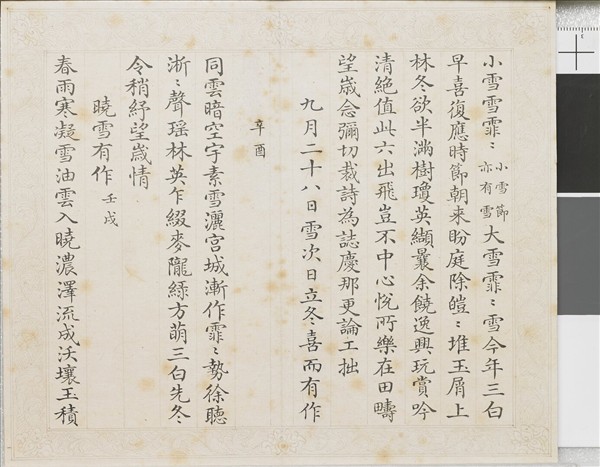 小雪雪霏〻小雪節亦有雪大雪霏〻雪今年三白
早喜復應時節朝来盼庭除皚〻堆玉屑上
林冬欲半滿樹瓊英纈曩余饒逸興玩賞吟
清絶值此六出飛豈不中心悅所樂在田疇
望歲念彌切裁詩為誌慶那更論工拙
九月二十八日雪次日立冬喜而有作
辛酉
同雲暗空宇素雪灑宮城漸作霏〻勢徐聽
淅〻聲瑶林英乍綴麥隴緑方萌三白先冬
令稍紓望歲情
曉雪有作 壬戌
春雨寒凝雪油雲入曉濃澤流成沃壤玉積